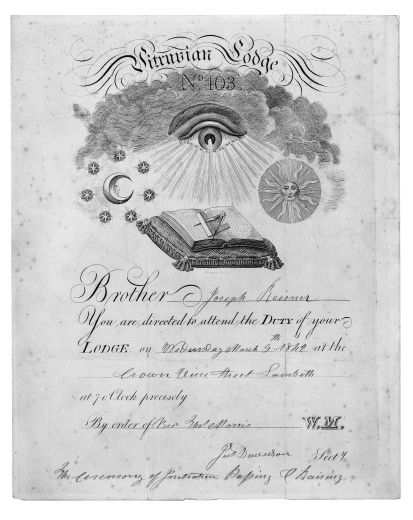 Vitruvian Lodge
No. 103.
Brother Joseph Reisner
You are directed to attend the DUTY of your
LODGE on Wednesday March 9th 1842 at the
Crown Vine Street Lambeth
at 7 o'Clock precisely
By order of Bro Morris W.M.
Davidson Sect'y
The Ceremony of Initiation Passing & Raising